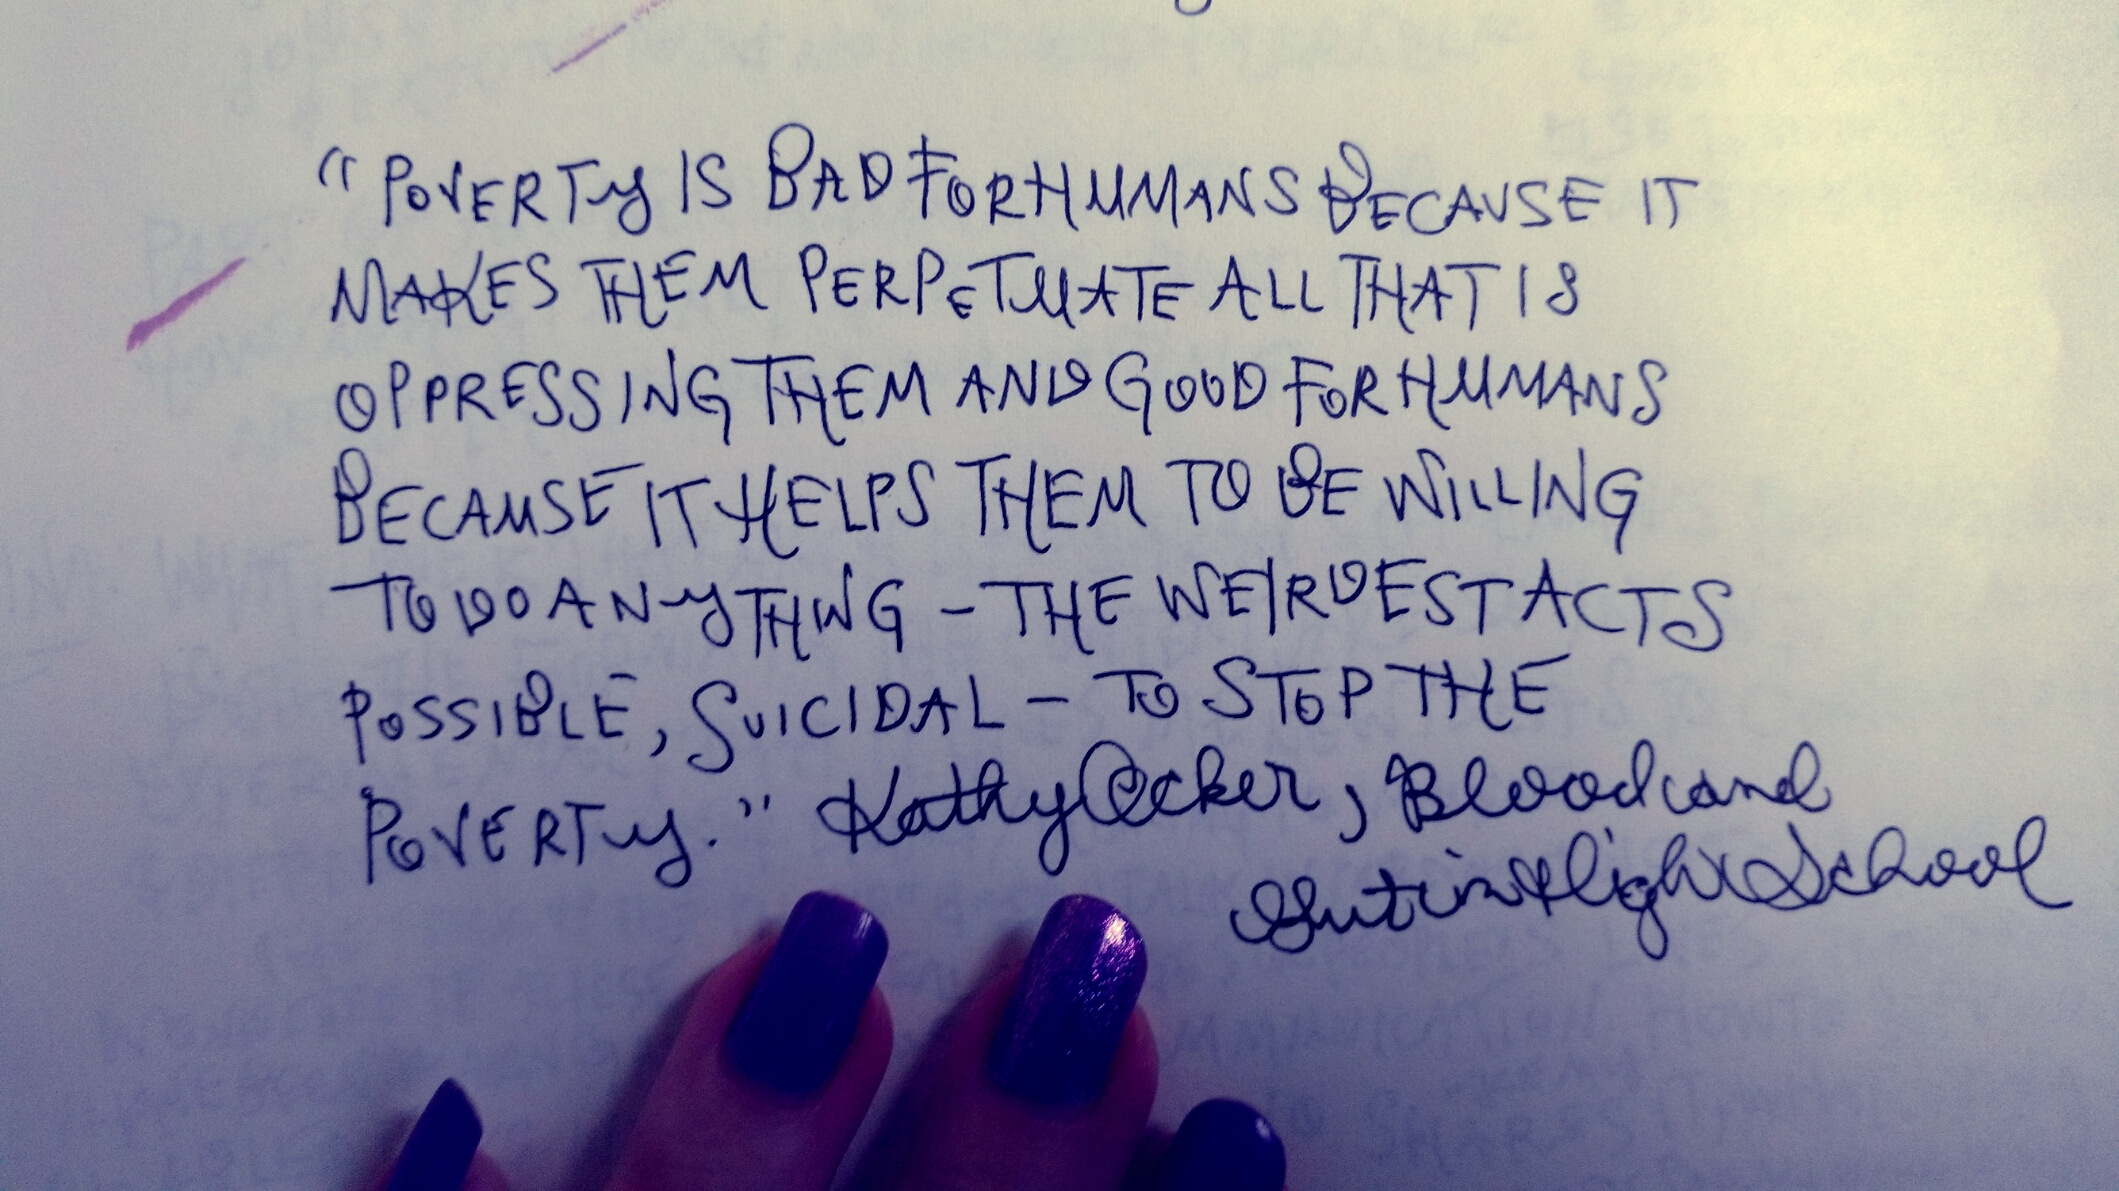 "POVERTY IS BAD FOR HUMANS BECAUSE IT
MAKES THEM PERPETUATE ALL THAT IS
OPPRESSING THEM AND GOOD FOR HUMANS
BECAUSE IT HELPS THEM TO BE WILLING
TO DO ANYTHING – THE WEIRDEST ACTS
POSSIBLE, SUICIDAL – TO STOP THE
POVERTY." Kathy Acker, Blood and
Guts in High School